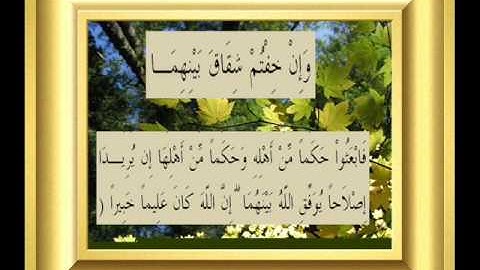 وَإِنْ خِفْتُمْ شِقَاقَ بَيْنِهِمَـــا
فَابْعَثُواْ حَكَماً مِّنْ أَهْلِهِ وَحَكَماً مِّنْ أَهْلِهَا إِن يُرِيـــدَا
إِصْلَاحاً يُوَفِّقِ اللَّهُ بَيْنَهُمَا ۗ إِنَّ اللَّهَ كَانَ عَلِيماً خَبِيراً (